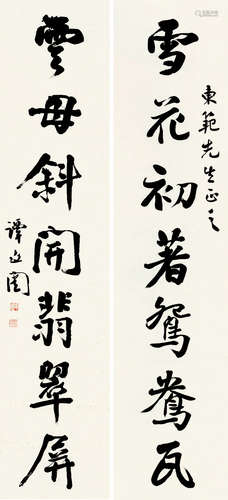 雪花初著鴛鴦瓦
東範先生正之
雲母斜開翡翠屏
譚延闓